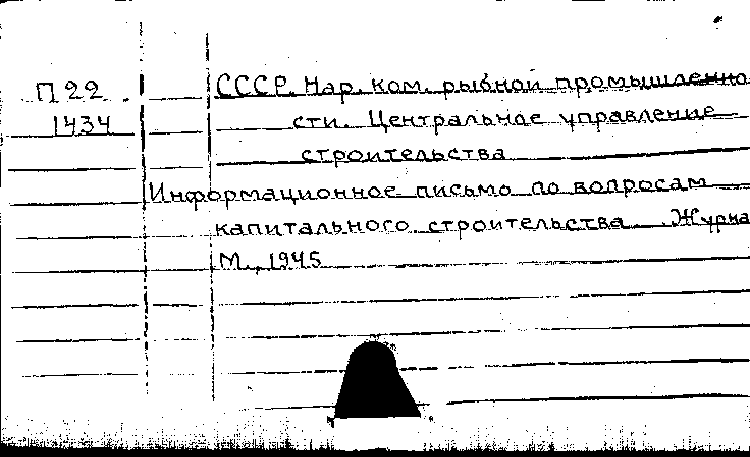 П22 СССР. Нар. ком. рыбной промышленно
1434 сти. Центральное управление
строительства
Информационное письмо по вопросам
капитального строительства. Журна
М., 1945